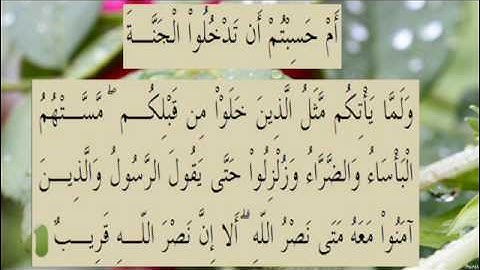 أَمْ حَسِبْتُمْ أَن تَدْخُلُواْ الْجَنَّـــةَ
وَلَمَّا يَأْتِكُم مَّثَلُ الَّذِينَ خَلَوْاْ مِن قَبْلِكُـــم ۖ مَّسَّـتْهُمُ
الْبَأْسَاءُ وَالضَّرَّاءُ وَزُلْزِلُواْ حَتَّى يَقُولَ الرَّسُولُ وَالَّذِيـــنَ
آمَنُواْ مَعَهُ مَتَى نَصْرُ اللّهِ ۗ أَلا إِنَّ نَصْرَ اللّـــهِ قَرِيـــبٌ